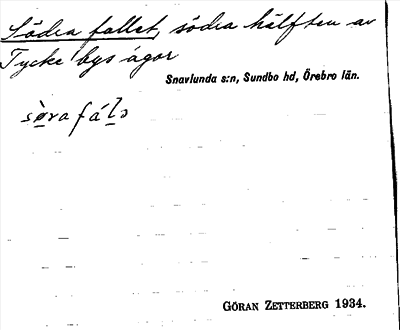 Södra fallet, södra hälften av
Tycke bys ägor
Snavlunda s:n, Sundbo hd, Örebro län.
GÖRAN ZETTERBERG 1934.